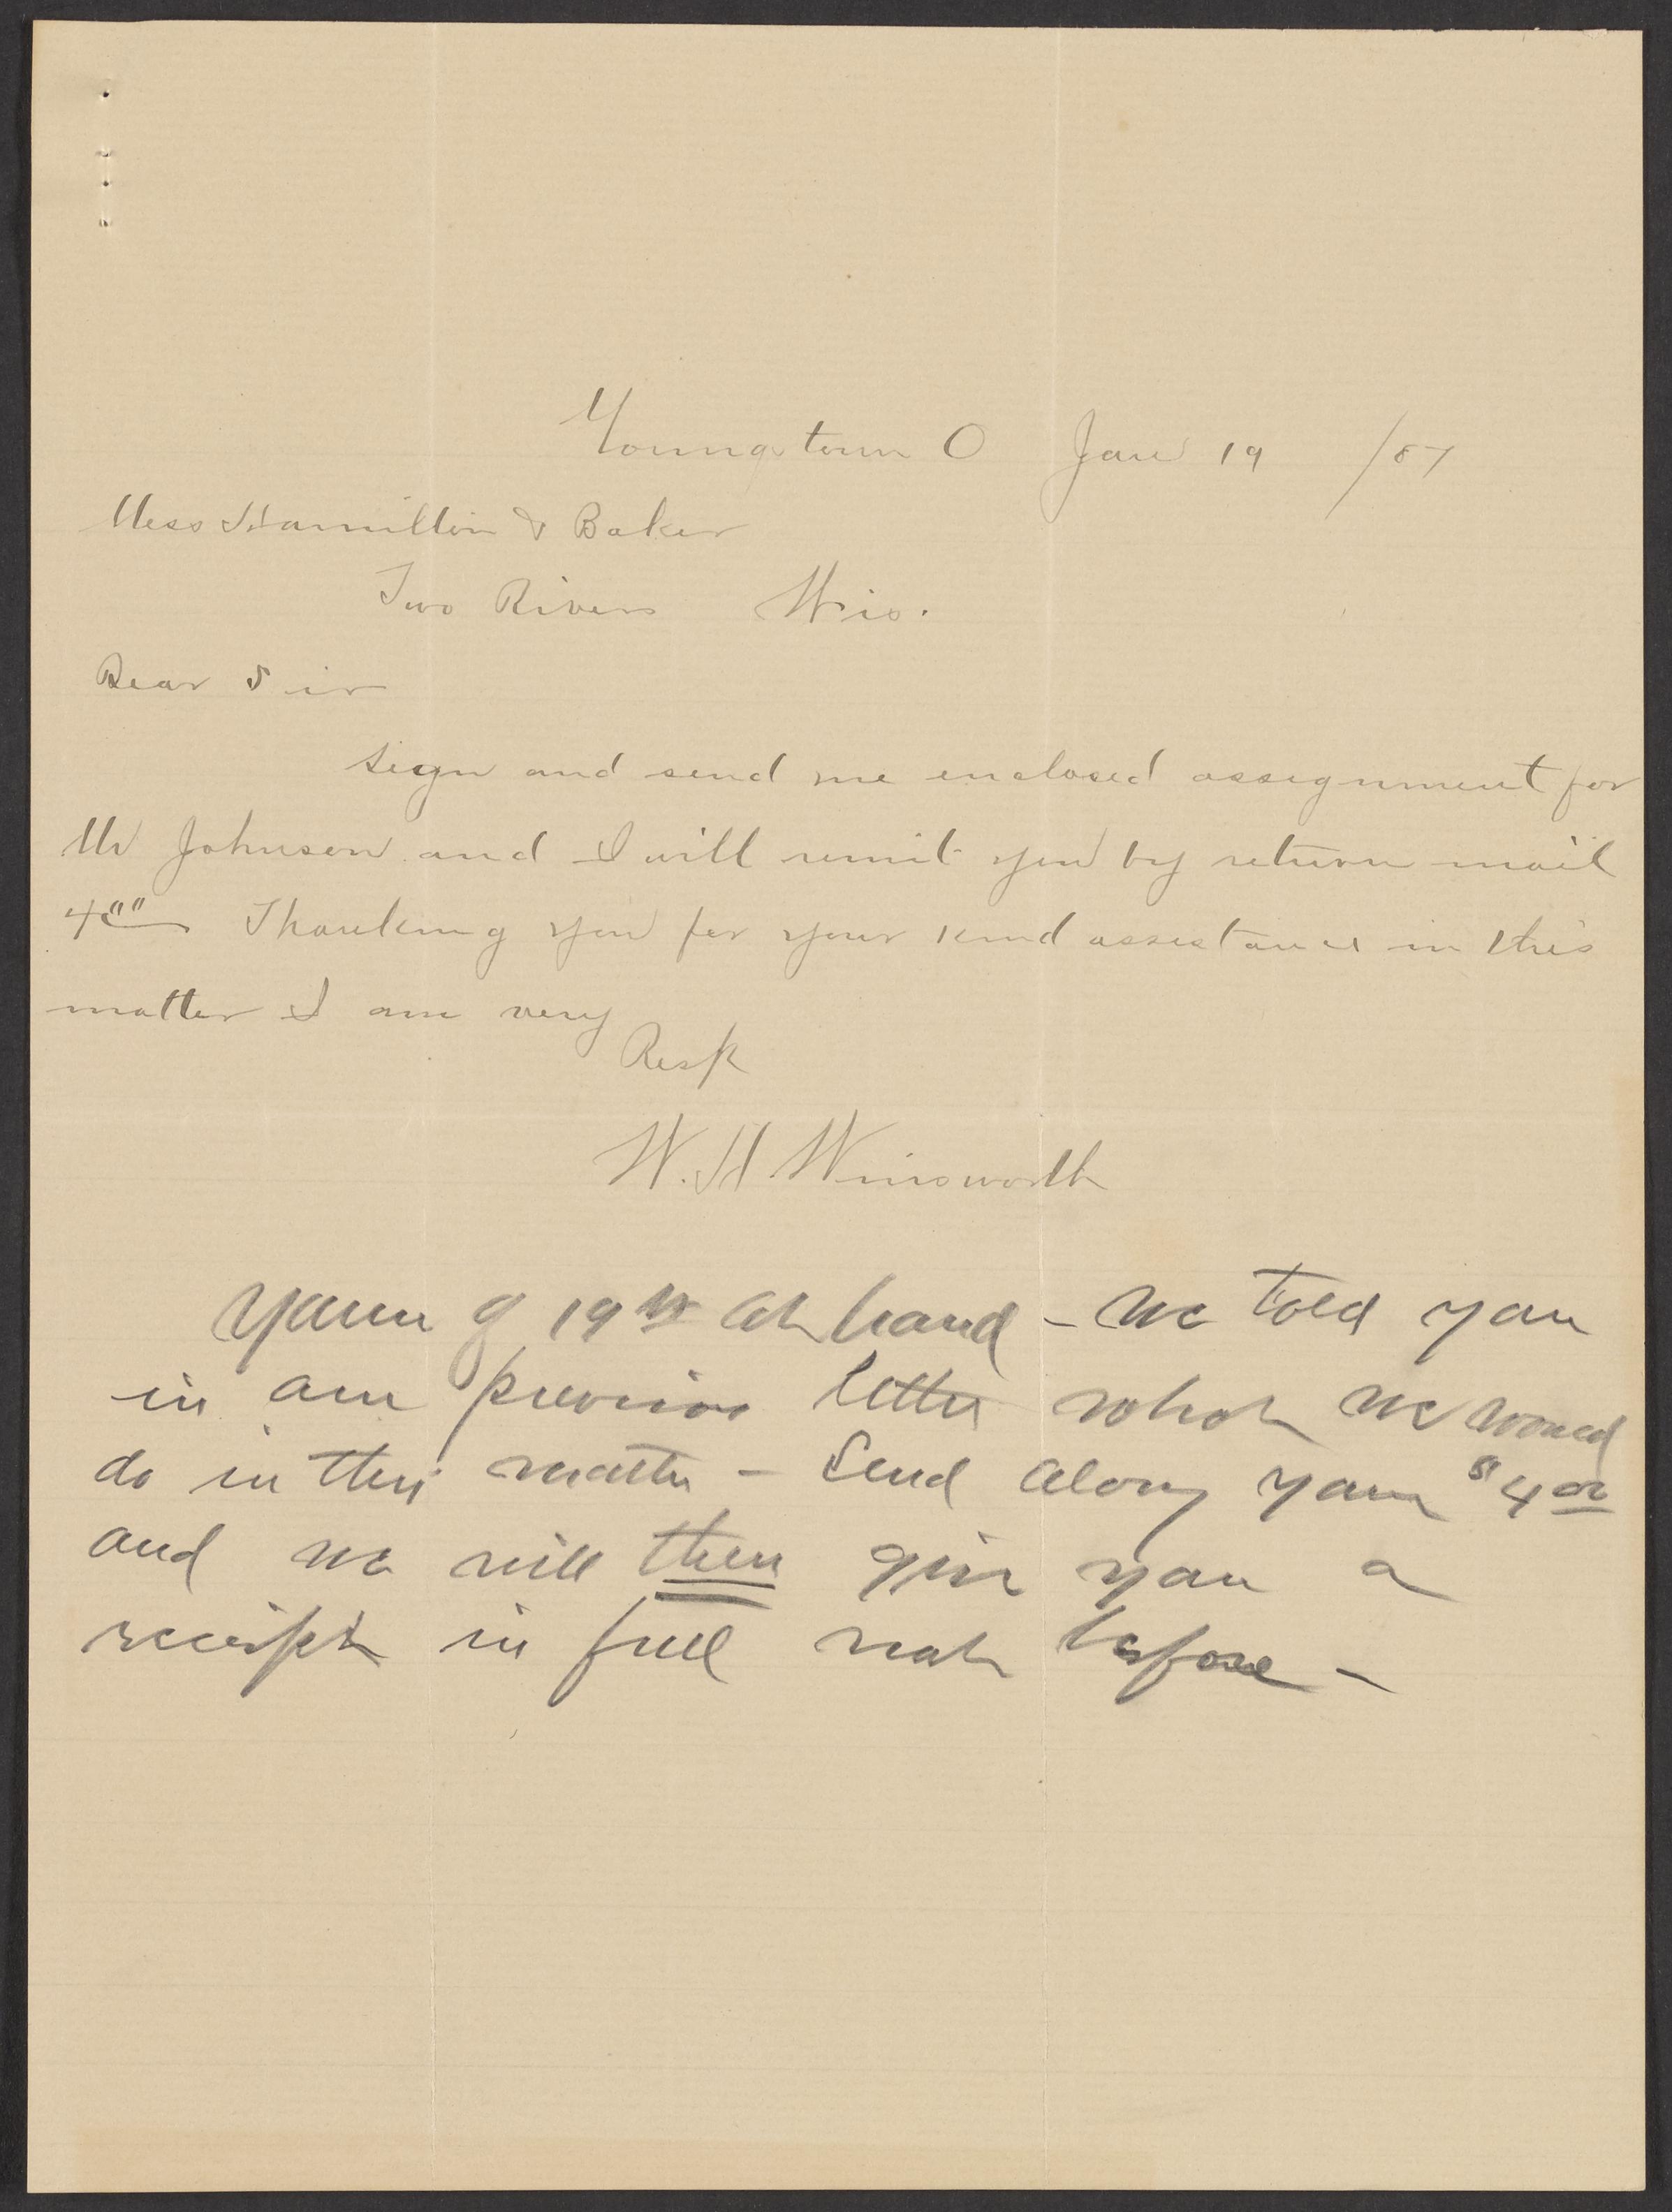 Youngstown O Jan 19 /87
Mess Hamilton & Baker
Two Rivers Wis.
Dear Sir
Sign and send me enclosed assignment for
Mr Johnson and I will remit you by return mail
4°° Thanking you for your kind assistance in this
matter I am very
Resp
W. H. Winsworth
Yours of 19th at hand – We told you
in our previous letter what we would
do in this matter – Send along your $4 00
and we will then give you a
receipt in full not before –